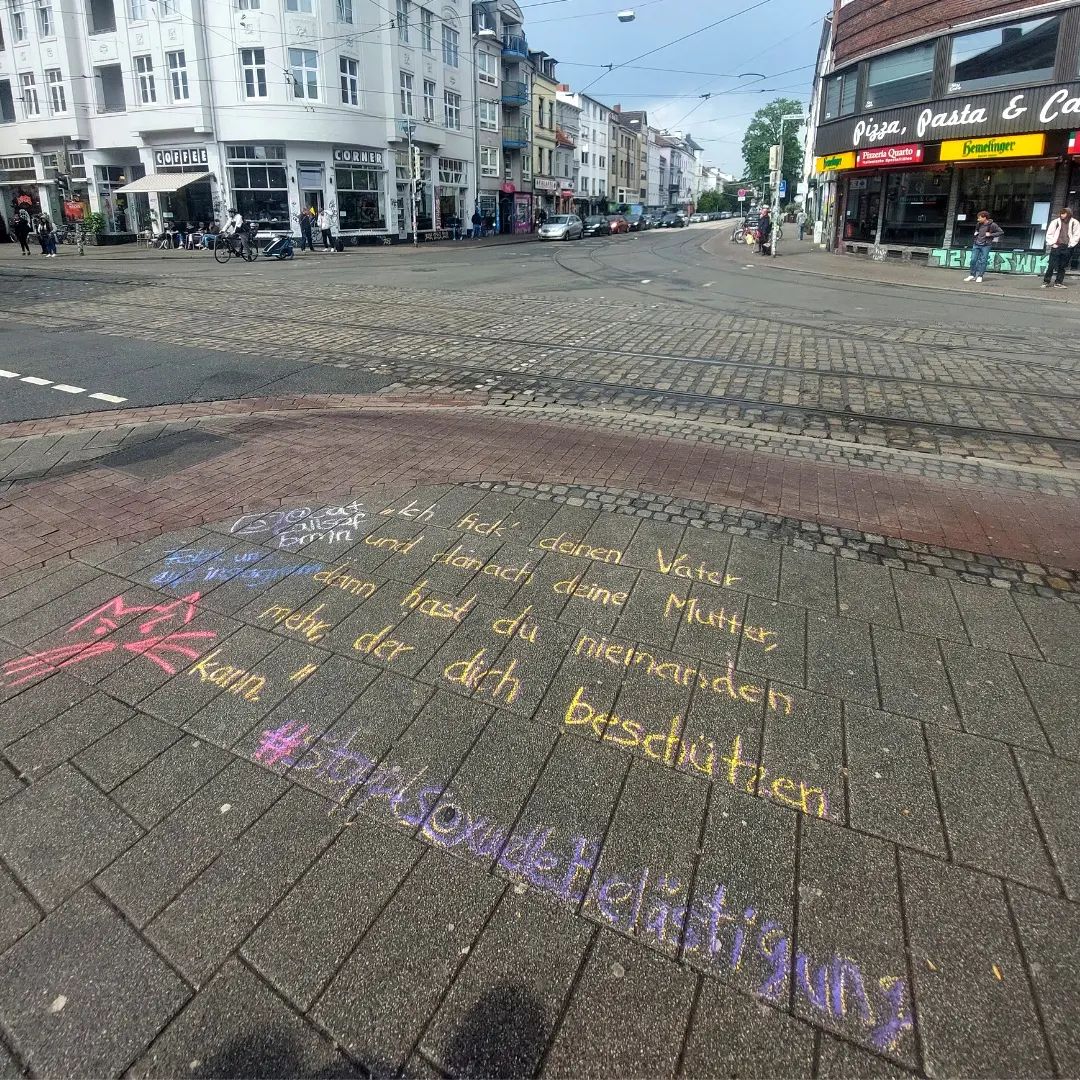 COFFEE
CORNER
Pizza, Pasta & Ca
Pizzeria Quarto
Hemelinger
@cat
callsof
brmn
"Ich fick' deinen Vater
und danach deine Mutter,
dann hast du niemanden
mehr, der dich beschützen
kann."
#stopptsexuelleBelästigung